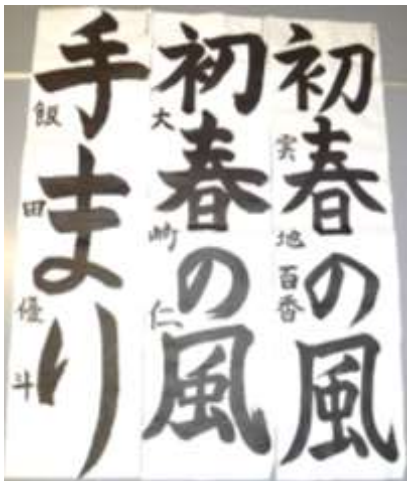 初春の風
実地百香
初春の風
大崎仁
手まり
飯田優斗